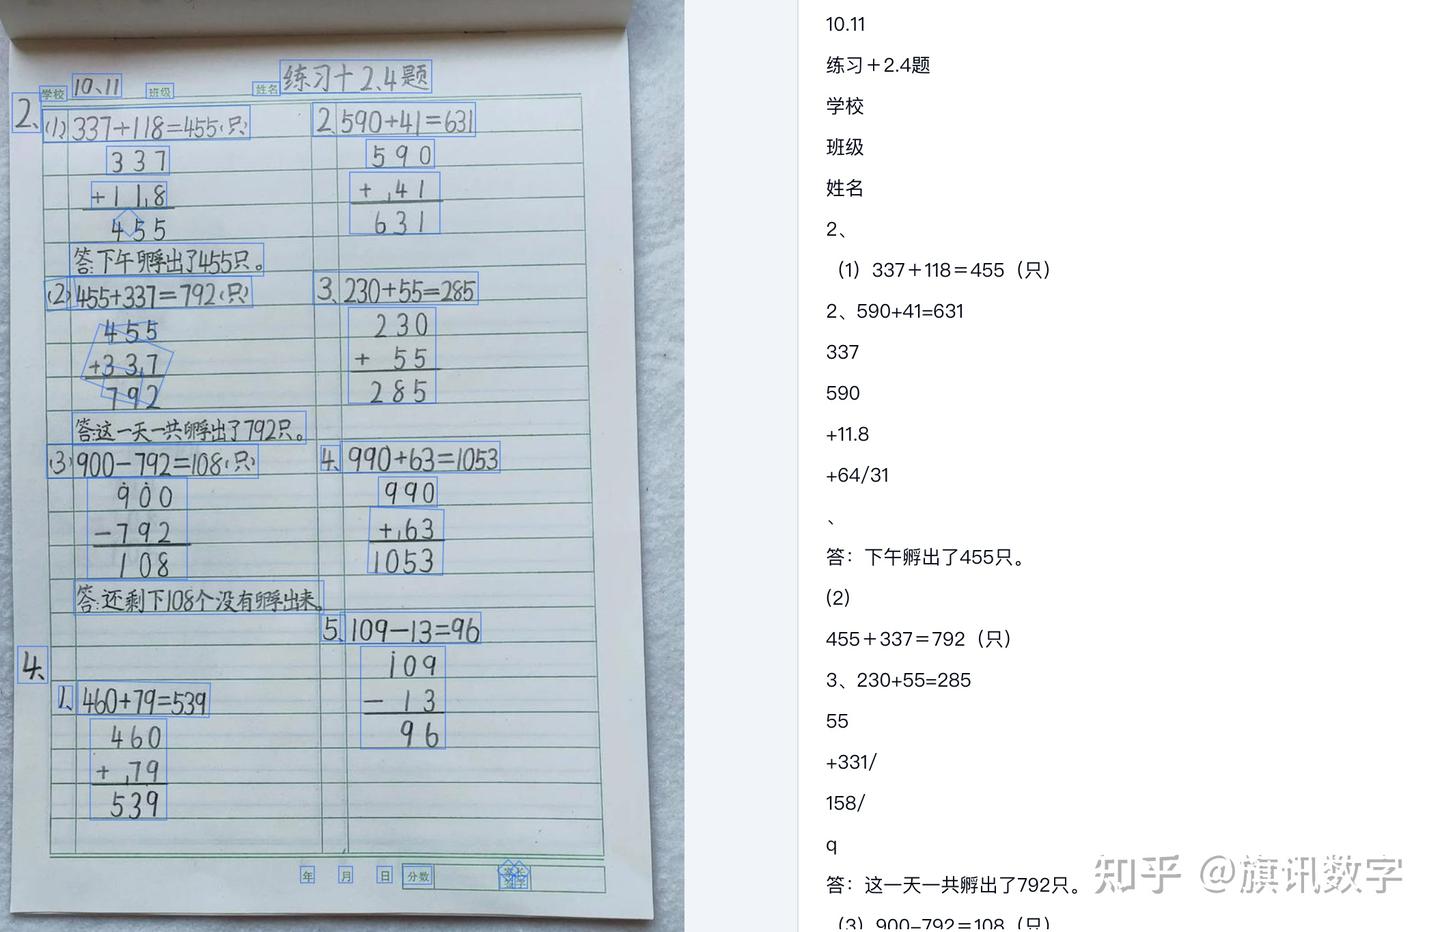 学校 10、11 班级 姓名 练习十 2、4题
2、
(1) 337+118=455(只)
337
+118
455
答:下午孵出了455只。
(2) 455+337=792(只)
455
+337
792
答:这一天一共孵出了792只。
(3) 900-792=108(只)
900
-792
108
答:还剩下108个没有孵出来。
4、
1、460+79=539
460
+ 79
539
2、590+41=631
590
+ 41
631
3、230+55=285
230
+ 55
285
4、990+63=1053
990
+ 63
1053
5、109-13=96
109
- 13
96
年 月 日 分数
10.11
练习+2.4题
学校
班级
姓名
2、
(1)337+118=455(只)
2、590+41=631
337
590
+11.8
+64/31
、
答:下午孵出了455只。
(2)
455+337=792(只)
3、230+55=285
55
+331/
158/
q
答:这一天一共孵出了792只。
(3)900-792=108(只)
知乎 @旗讯数字